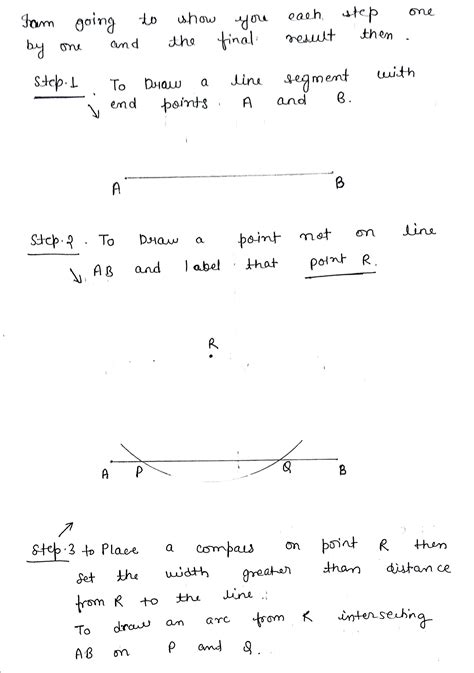 I am going to show you each step one
by one and the final result then.
Step.1 . To Draw a line segment with
end points. A and B.
A B
Step.2 . To Draw a point not on line
AB and label that point R.
R
A P Q B
Step.3 to Place a compass on point R then
set the width greater than distance
from R to the line .:
To draw an arc from R intersecting
AB on P and Q.